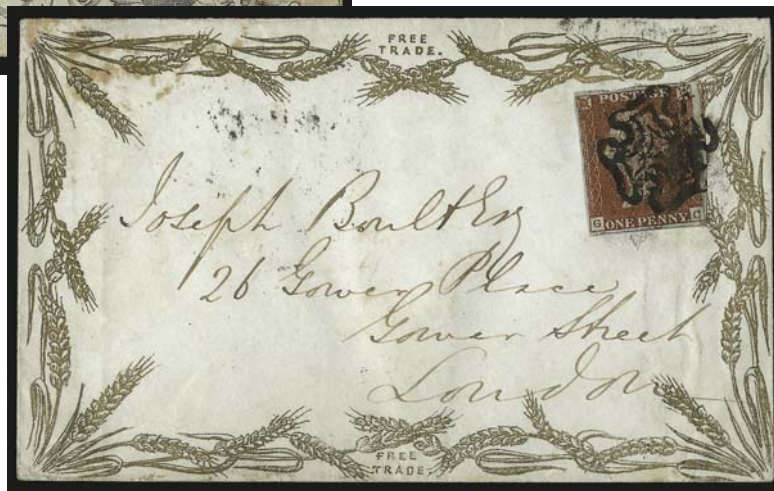 FREE
TRADE.
POSTAGE
G ONE PENNY C
Joseph Boult Esq
26 Gower Place
Gower Street
London
FREE
TRADE.